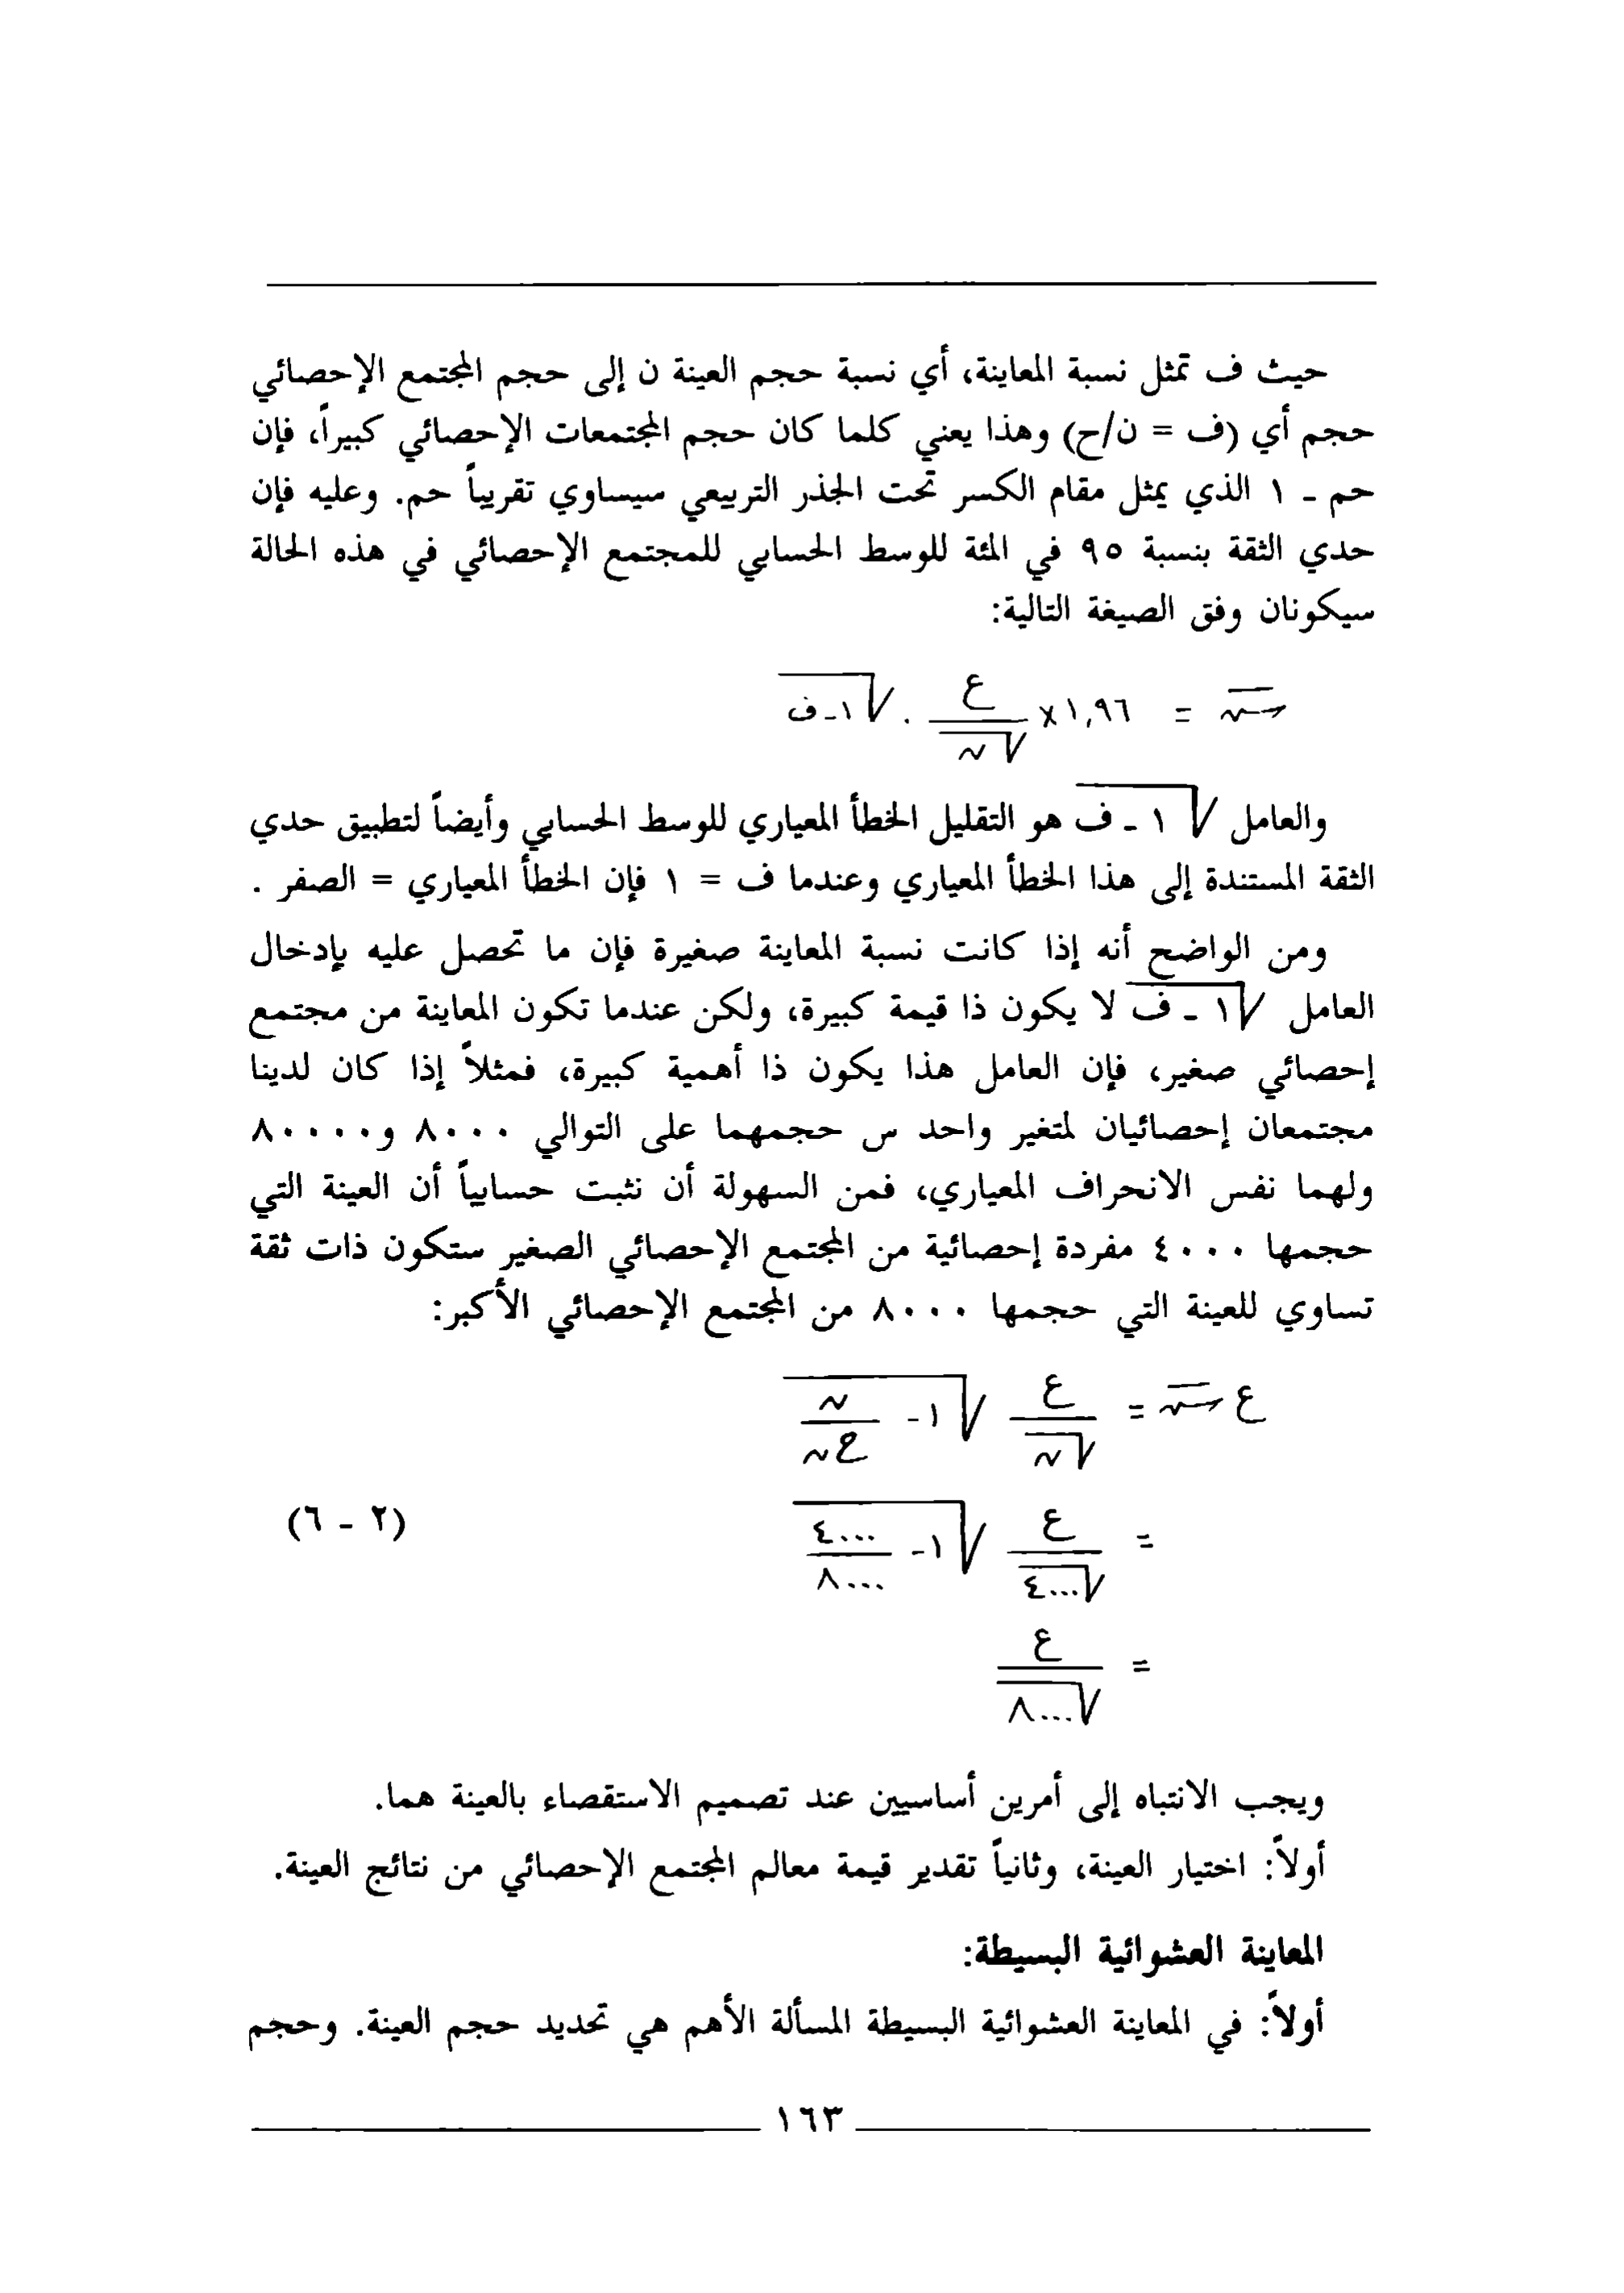 حيث ف تمثل نسبة المعاينة، أي نسبة حجم العينة ن إلى حجم المجتمع الإحصائي
حجم أي (ف = ن/ح) وهذا يعني كلما كان حجم المجتمعات الإحصائي كبيراً، فإن
حم ـ ١ الذي يمثل مقام الكسر تحت الجذر التربيعي سيساوي تقريباً حم. وعليه فإن
حدي الثقة بنسبة ٩٥ في المئة للوسط الحسابي للمجتمع الإحصائي في هذه الحالة
سيكونان وفق الصيغة التالية:
سَ = ١,٩٦ × ع/√ن . √١ ـ ف
والعامل √١ ـ ف هو التقليل الخطأ المعياري للوسط الحسابي وأيضاً لتطبيق حدي
الثقة المستندة إلى هذا الخطأ المعياري وعندما ف = ١ فإن الخطأ المعياري = الصفر .
ومن الواضح أنه إذا كانت نسبة المعاينة صغيرة فإن ما تحصل عليه بإدخال
العامل √١ ـ ف لا يكون ذا قيمة كبيرة، ولكن عندما تكون المعاينة من مجتمع
إحصائي صغير، فإن العامل هذا يكون ذا أهمية كبيرة، فمثلاً إذا كان لدينا
مجتمعان إحصائيان لمتغير واحد س حجمهما على التوالي ٨٠٠٠ و٨٠٠٠٠
ولهما نفس الانحراف المعياري، فمن السهولة أن نثبت حسابياً أن العينة التي
حجمها ٤٠٠٠ مفردة إحصائية من المجتمع الإحصائي الصغير ستكون ذات ثقة
تساوي للعينة التي حجمها ٨٠٠٠ من المجتمع الإحصائي الأكبر:
ع سَ = ع/√ن √١ - ن/حن
= ع/√٤٠٠٠ √١ - ٤٠٠٠/٨٠٠٠ (٢ - ٦)
= ع/√٨٠٠٠
ويجب الانتباه إلى أمرين أساسيين عند تصميم الاستقصاء بالعينة هما.
أولاً: اختيار العينة، وثانياً تقدير قيمة معالم المجتمع الإحصائي من نتائج العينة.
المعاينة العشوائية البسيطة:
أولاً: في المعاينة العشوائية البسيطة المسألة الأهم هي تحديد حجم العينة. وحجم
١٦٣